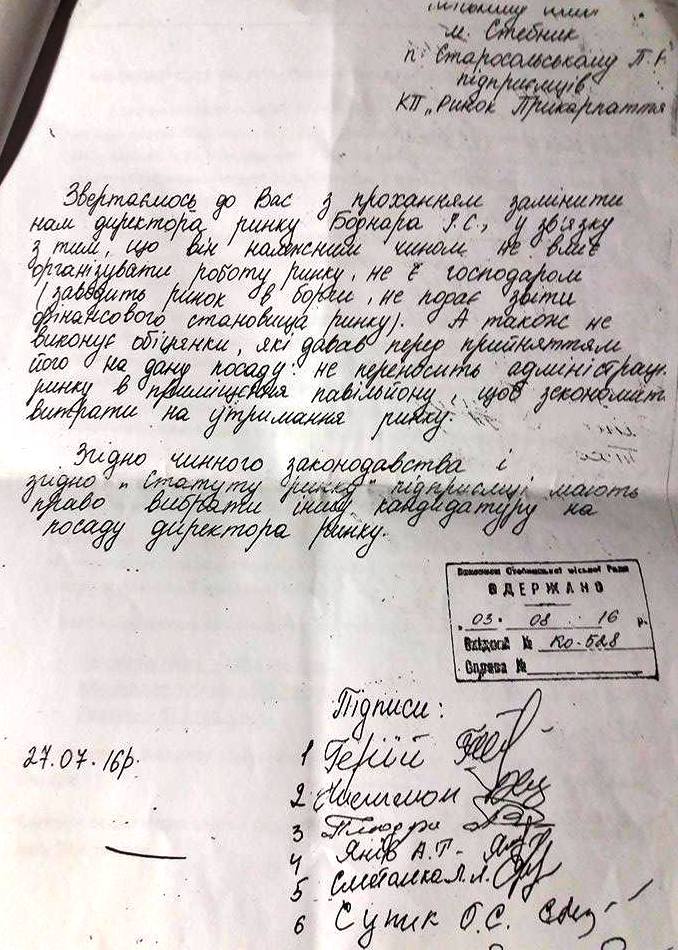 м. Стебник
п. Старосольському П.
підприємців
КП „Ринок Прикарпаття
Звертаємось до Вас з проханням замінити
нам директора ринку Боднара І.С., у зв'язку
з тим, що він належним чином не вміє
організувати роботу ринку, не є господарем
(заводить ринок в борги, не подає звіти
фінансового становища ринку). А також не
виконує обіцянки, які давав перед прийняттям
його на дану посаду: не переносить адміністрац.
ринку в приміщення павільйону, щоб зекономит
витрати на утримання ринку.
Згідно чинного законодавства і
згідно „Статуту ринку" підприємці мають
право вибрати іншу кандидатуру на
посаду директора ринку.
Виконком Стебницької міської Ради
ОДЕРЖАНО
03. 08 16 р.
Вхідний № Ко-528
Справа №
Підписи:
27.07.16р.
1 Герій
2
3
4 Янів А.Т-
5 Сметанка Л.Л.
6 Супик О.С.